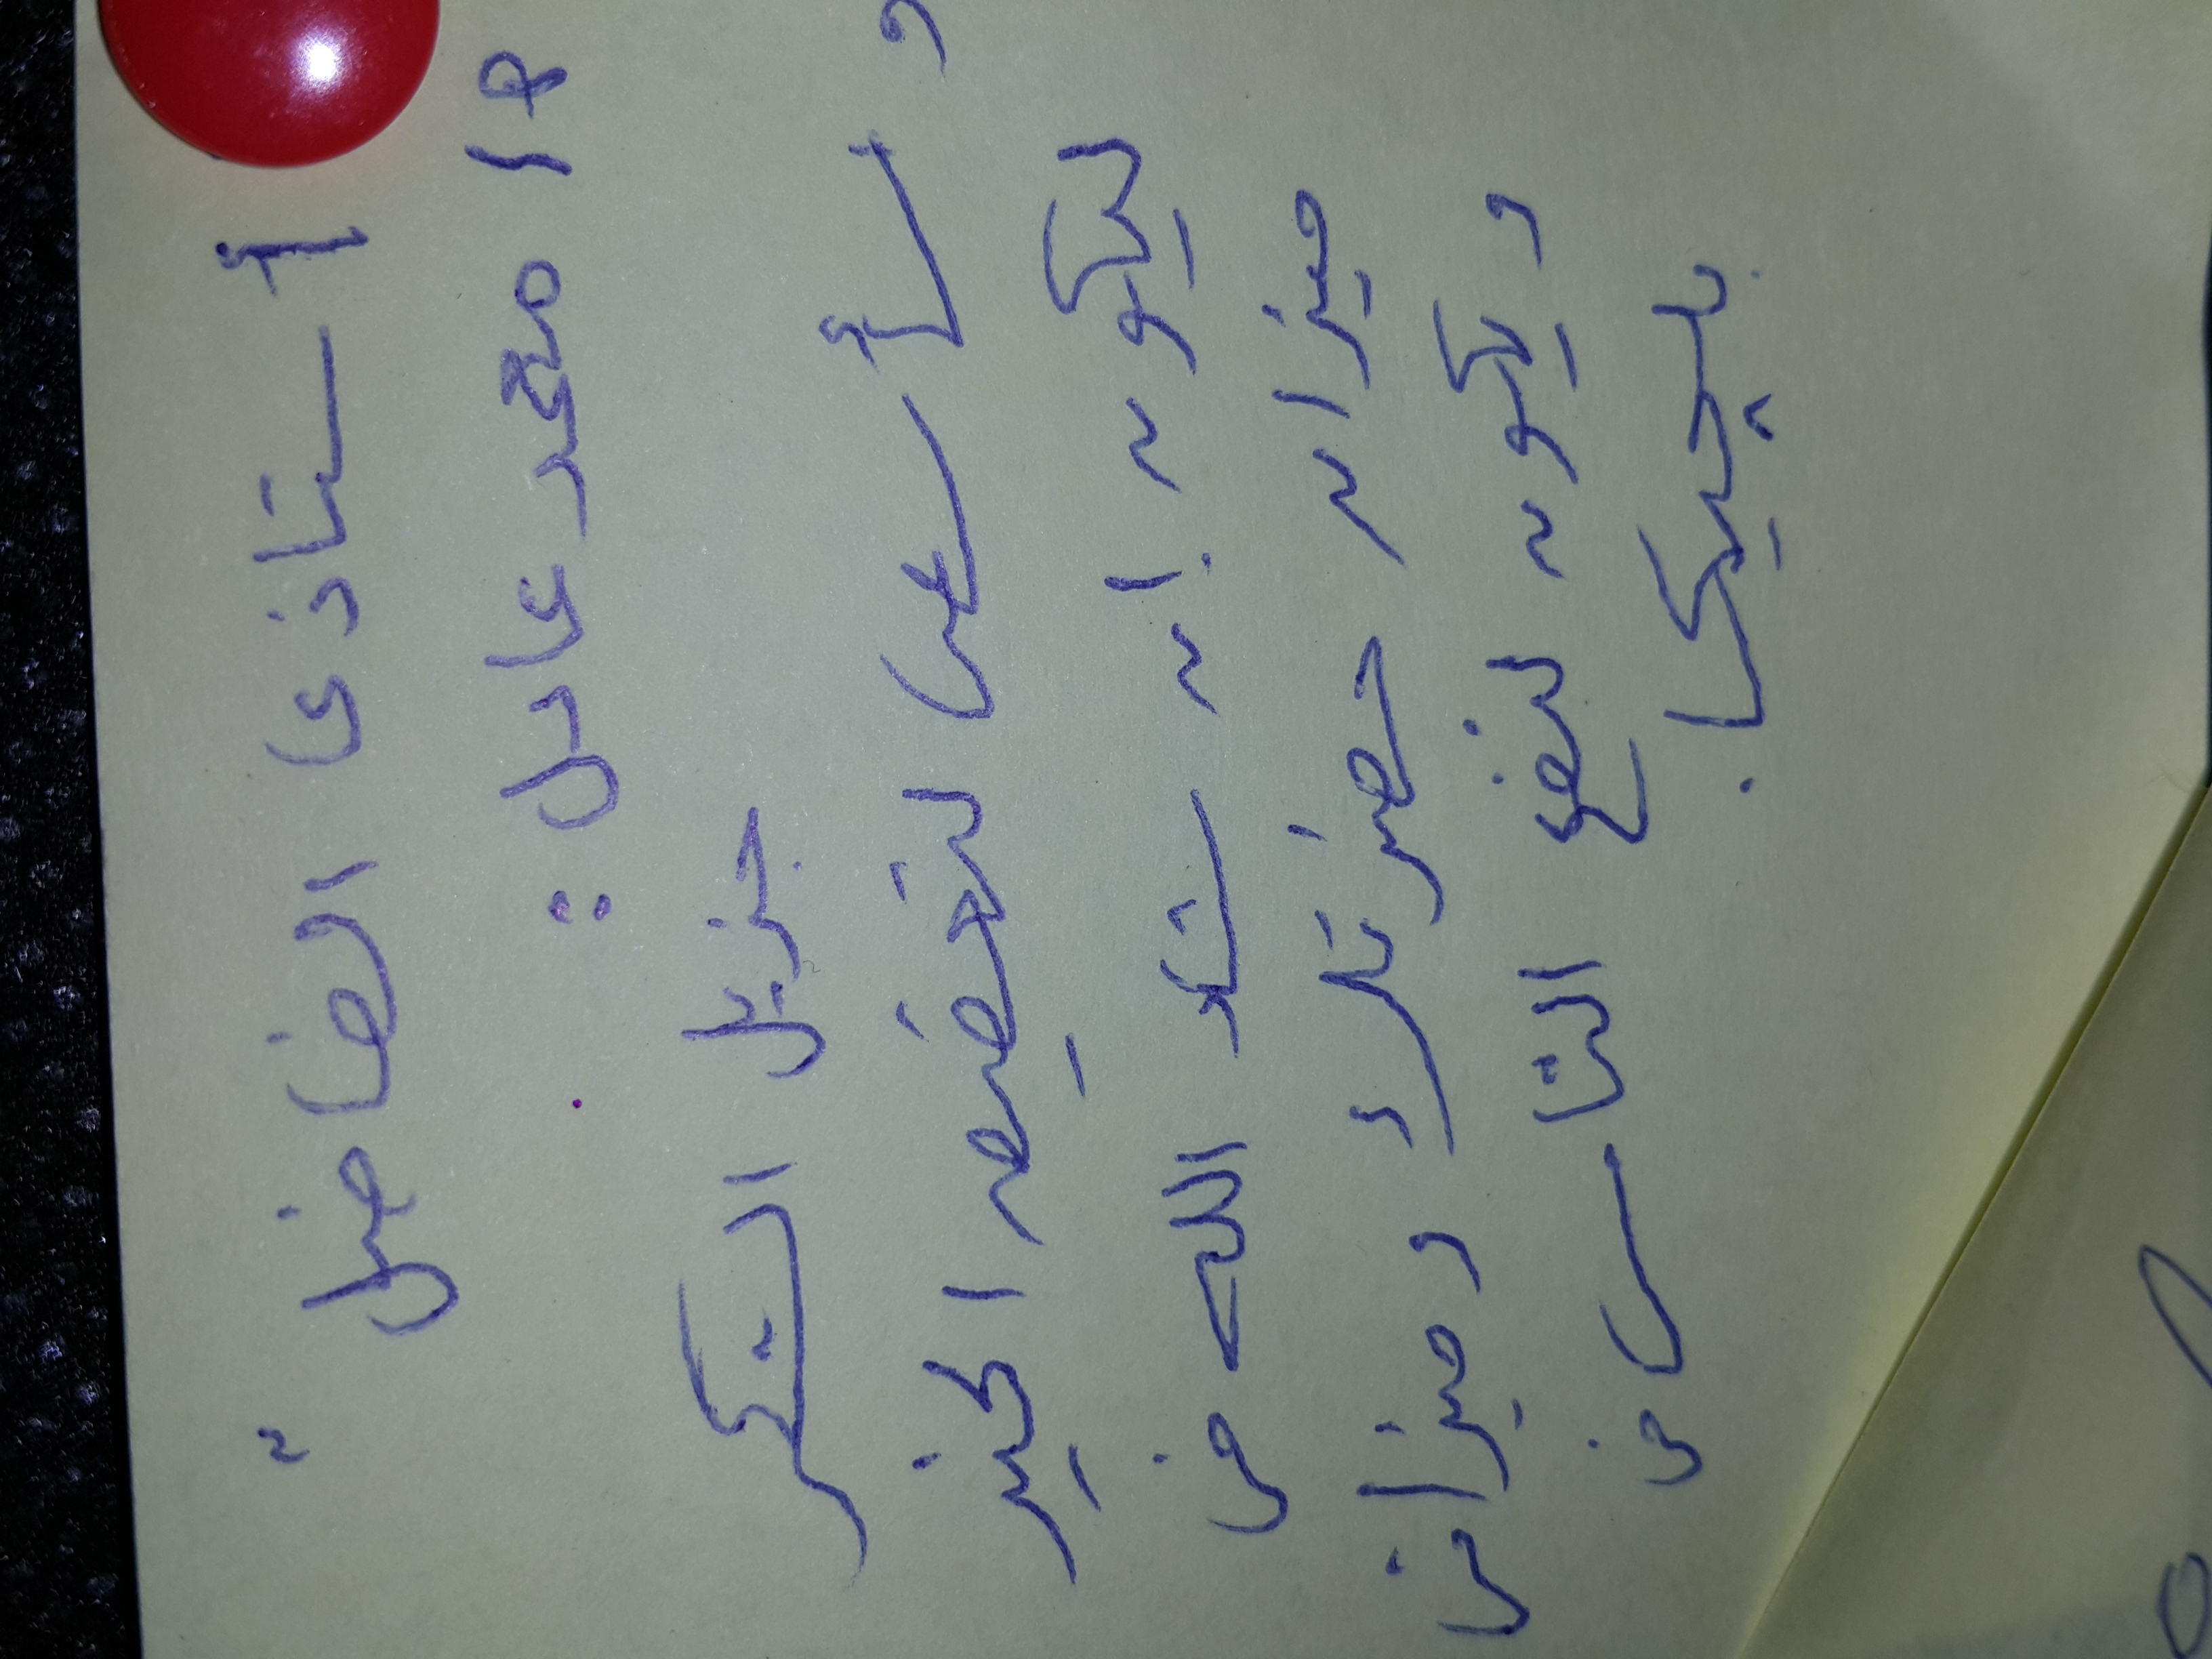 أستاذى الفاضل
م/ محمد عادل :
جزيل الشكر
و سأسعى لتعضيض الخير
ليكون إن شاء الله فى
ميزان حضرتك و ميزانى
و يكون لنفع الناس فى
بلچيكا.